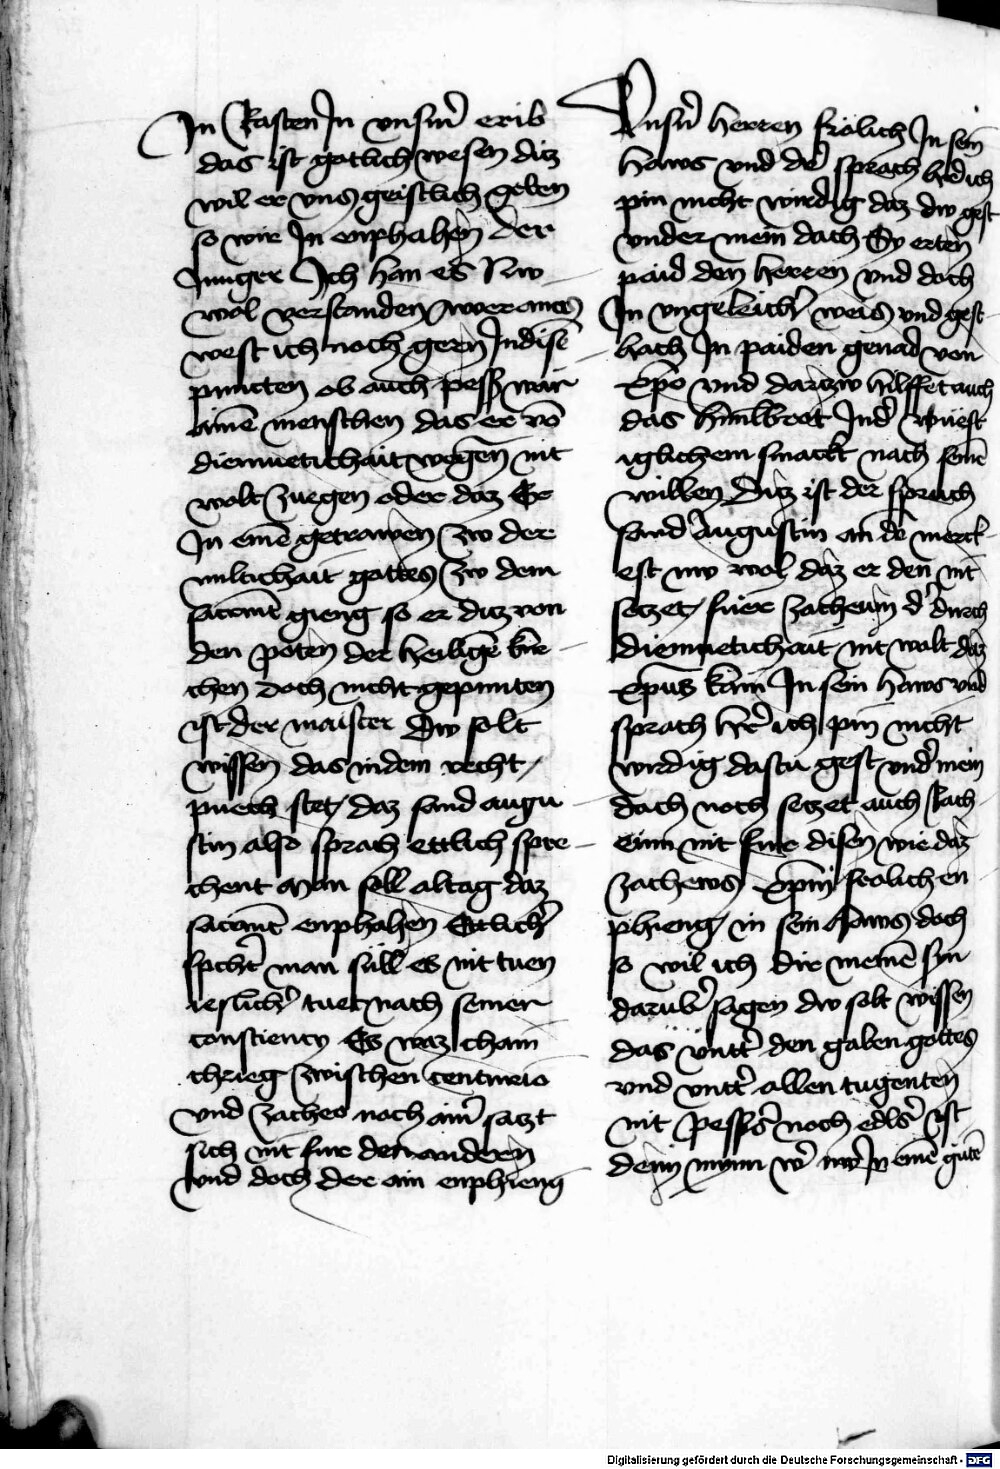 In Rasten In vnsm̄ erib
das ist gotlich wesen daz
wil er vns geistlich geben
so wir In enphahen der
Junger Ich han es Nw
wol verstanden
west ich noch gern In disē
puncten ob auch pesß wär
ainē menschen das er vō
diemuetichait wegen nit
wolt zuegen oder daz Er
In einē getrawen zw der
miltichait gottes zw dem
sacramēt gieng so er daz von
den poten der heiligē kir
chen doch nicht gepunten
ist der maister Dw solt
wissen das in dem recht
puech stet / daz sand augu
stin also sprach ettlich spre
chent Man soll altag daz
sacramēt enphahen Ettlich
spcht man süll es nit tuen
ieslich tue nach seiner
consciency Es waz chain
chrieg zwischen centurio
vnd zacheo noch ainr satzt
sich nit fur den andern
vnd doch der ain enphieng
Vnsn̄ herren frölich In sein
haws vnd der sprach her ich
pin nicht wirdig daz dw gest
vnder mein dach Sy erten
paid den herren vnd doch
In vngeleicher weis vnd gest
hach In paiden genad von
xp̄o vnd darczw hilffet auch
das himlbrot In der wuest
iglichem smackt nach seinē
willen Daz ist der spruch
sand Augustin an dē merck
est nw wol daz er den nit
seczet / fuer zacheum der durch
diemuetichait nit wolt daz
xp̄us kam In sein haws vnd
sprach her ich pin nicht
wirdig dastu gest vnder mein
dach noch seczet auch
einn nit fur disen wie daz
zachews xp̄m frolich en
phieng / in sein haws doch
so wil ich dir meinē syn
darub sagen dw solt wissen
das vntter den gaben gottes
vnd vntter allen tugenten
nit pesser noch edler ist
denn mynn In einē gutē
Digitalisierung gefördert durch die Deutsche Forschungsgemeinschaft - DFG